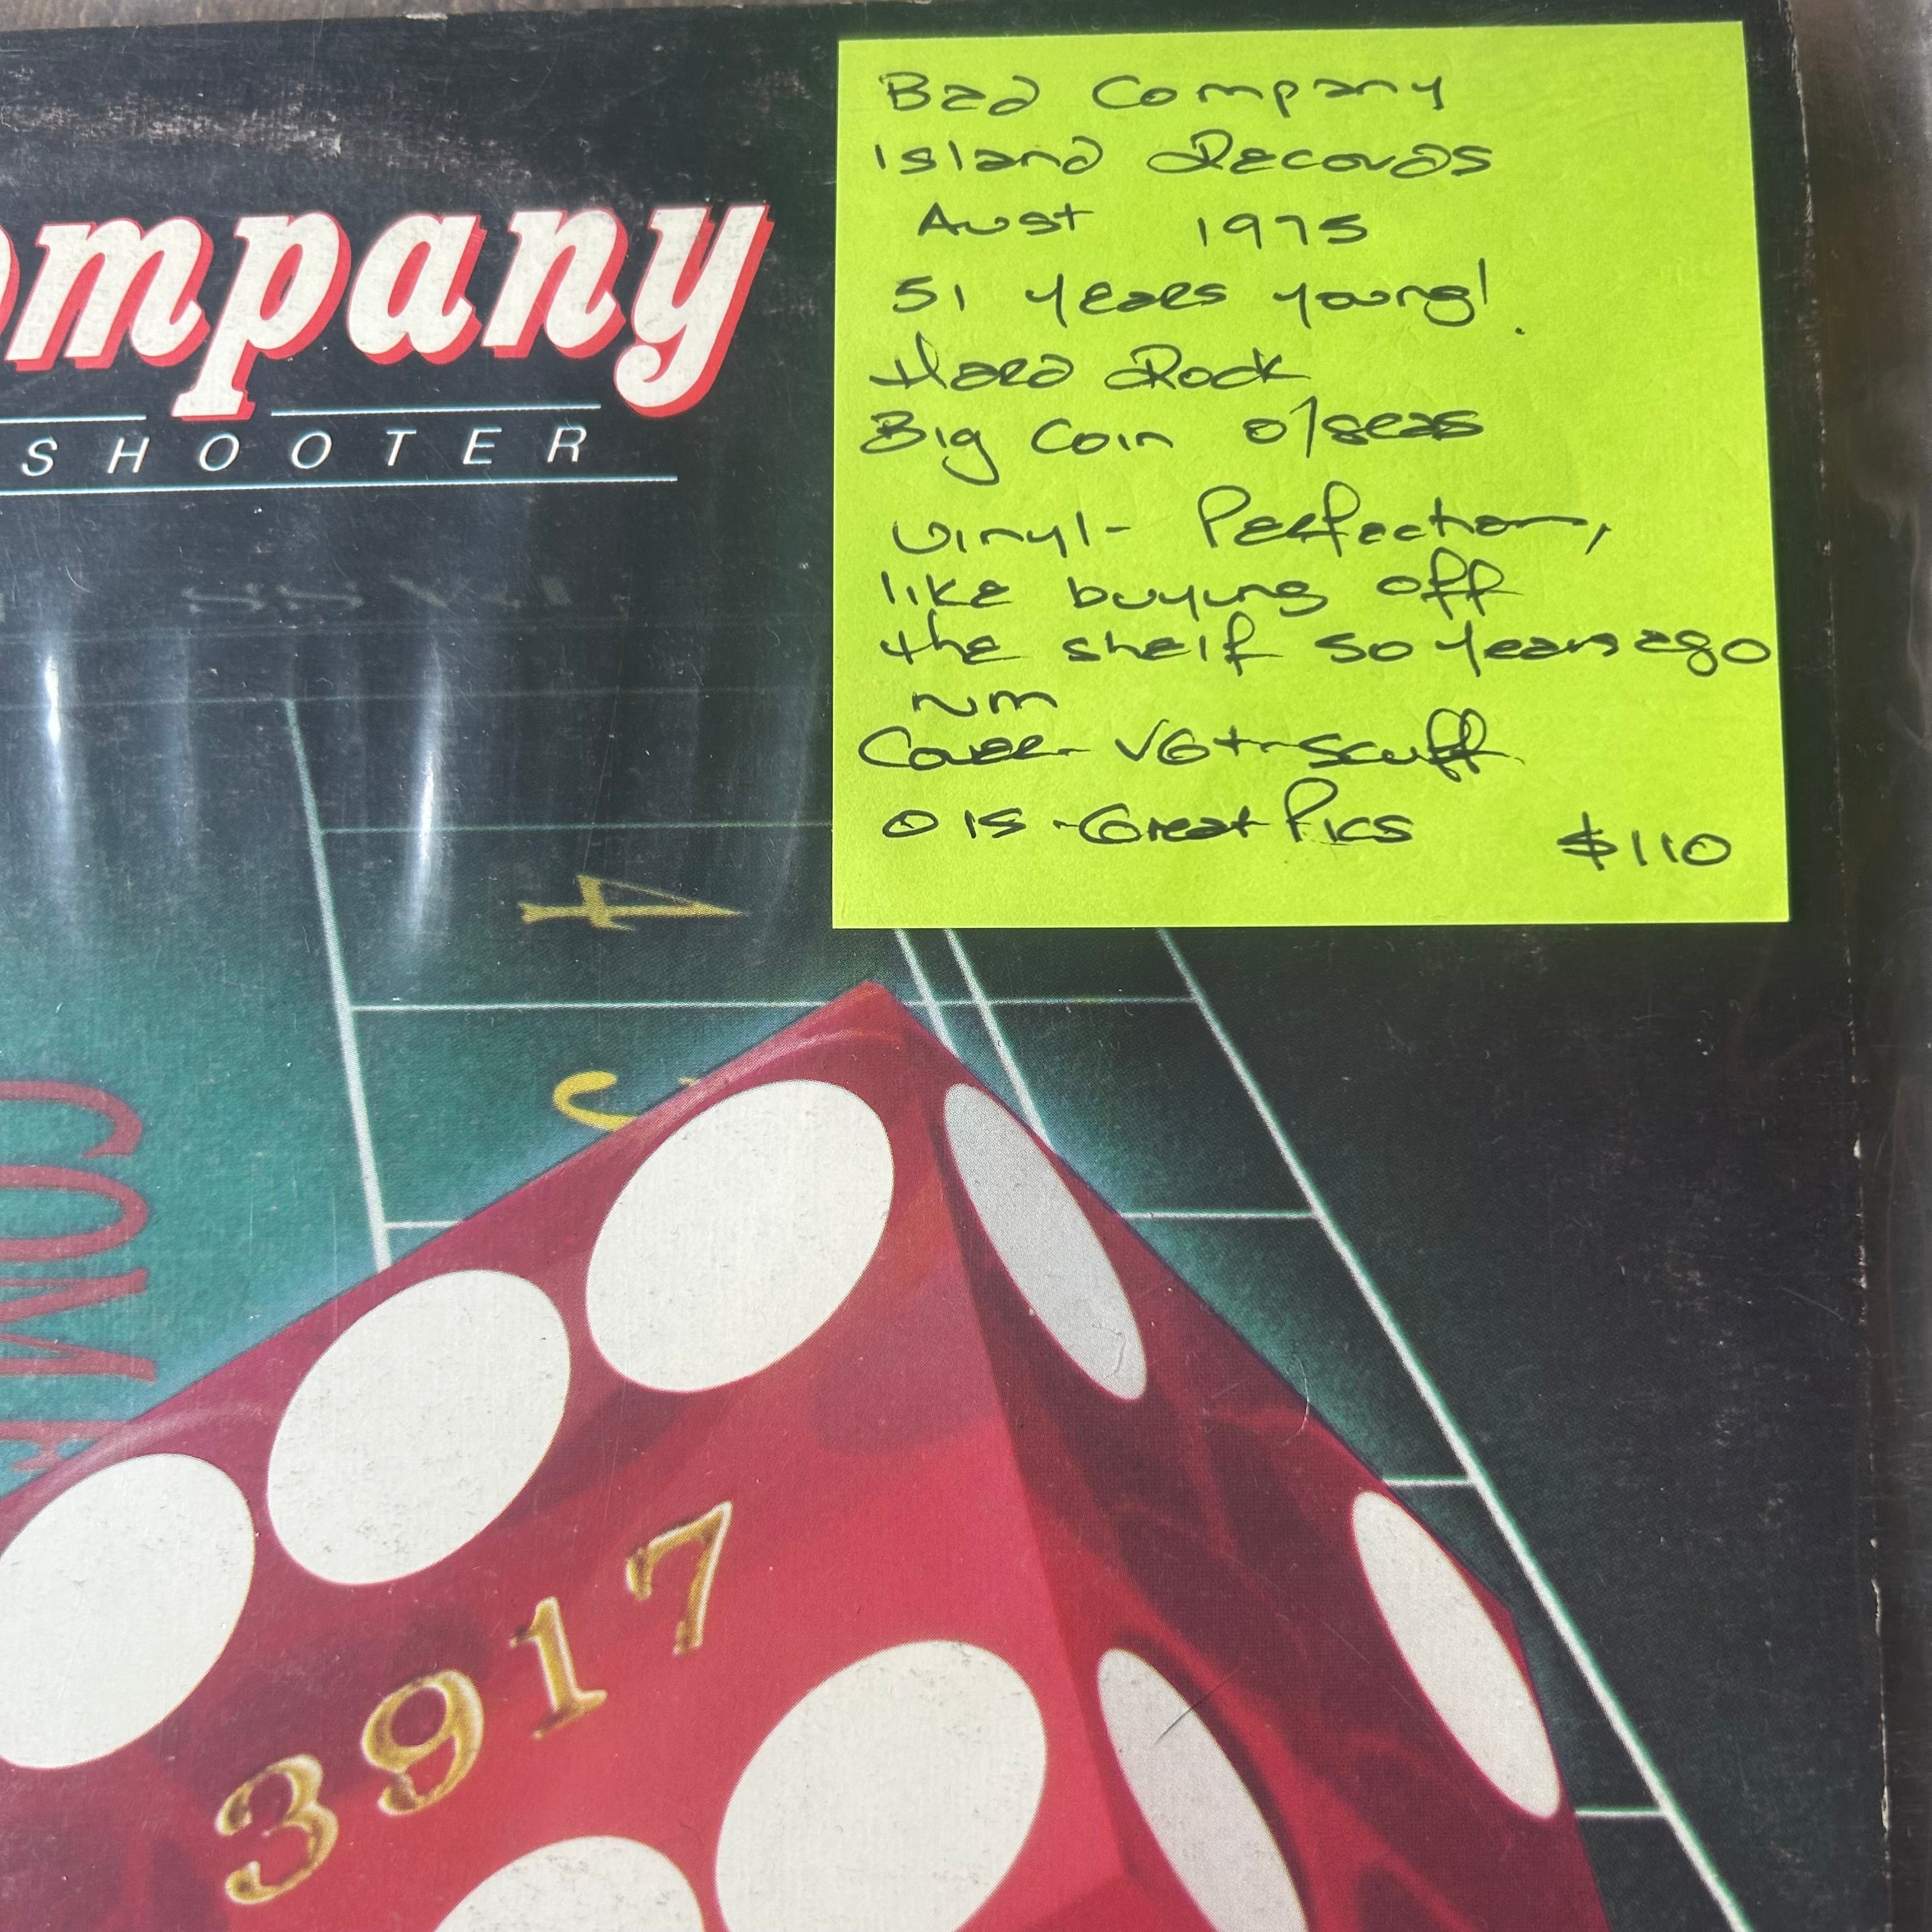 ompany
SHOOTER
Bad Company
Island Records
Aust 1975
51 years young!
Hard Rock
Big Coin o/seas
Vinyl- Perfection,
like buying off
the shelf 50 years ago
NM
Cover VG+ scuff
OIS-Great Pics $110
4
COME
3917